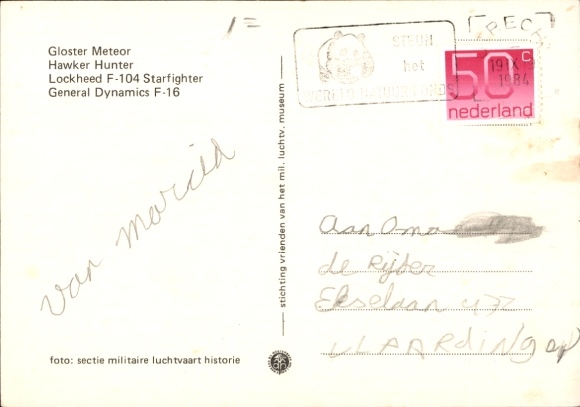 1 =
Gloster Meteor
Hawker Hunter
Lockheed F-104 Starfighter
General Dynamics F-16
STEUN
het
WERELD NATUUR FONDS
19 IX
1984
50 c
nederland
van
stichting vrienden van het mil. luchtv. museum
Aan Oma
de Rijder
VLAARDINgen
foto: sectie militaire luchtvaart historie